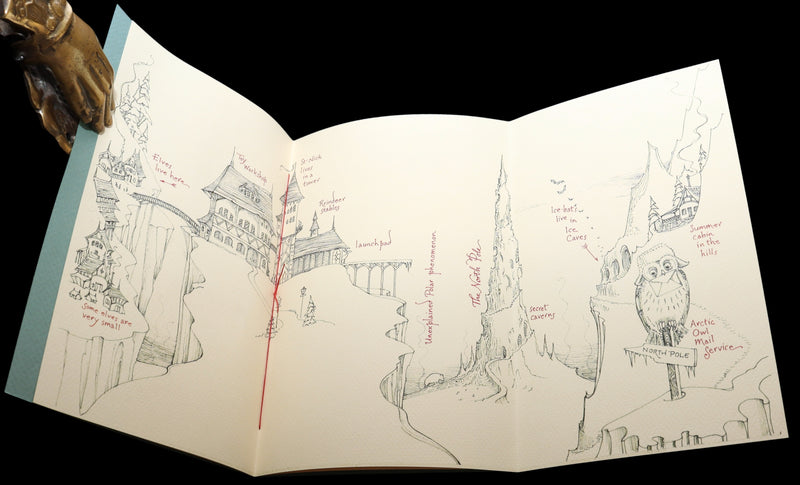 Elves
live here
Some elves are
very small
Toy
Workshop
St. Nick
lives
in a
tower
Reindeer
stables
launchpad
Unexplained Polar phenomenon
The North Pole
secret
caverns
Ice-bats
live in
Ice
Caves
Summer
cabin
in the
hills
Arctic
Owl
Mail
Service
NORTH POLE